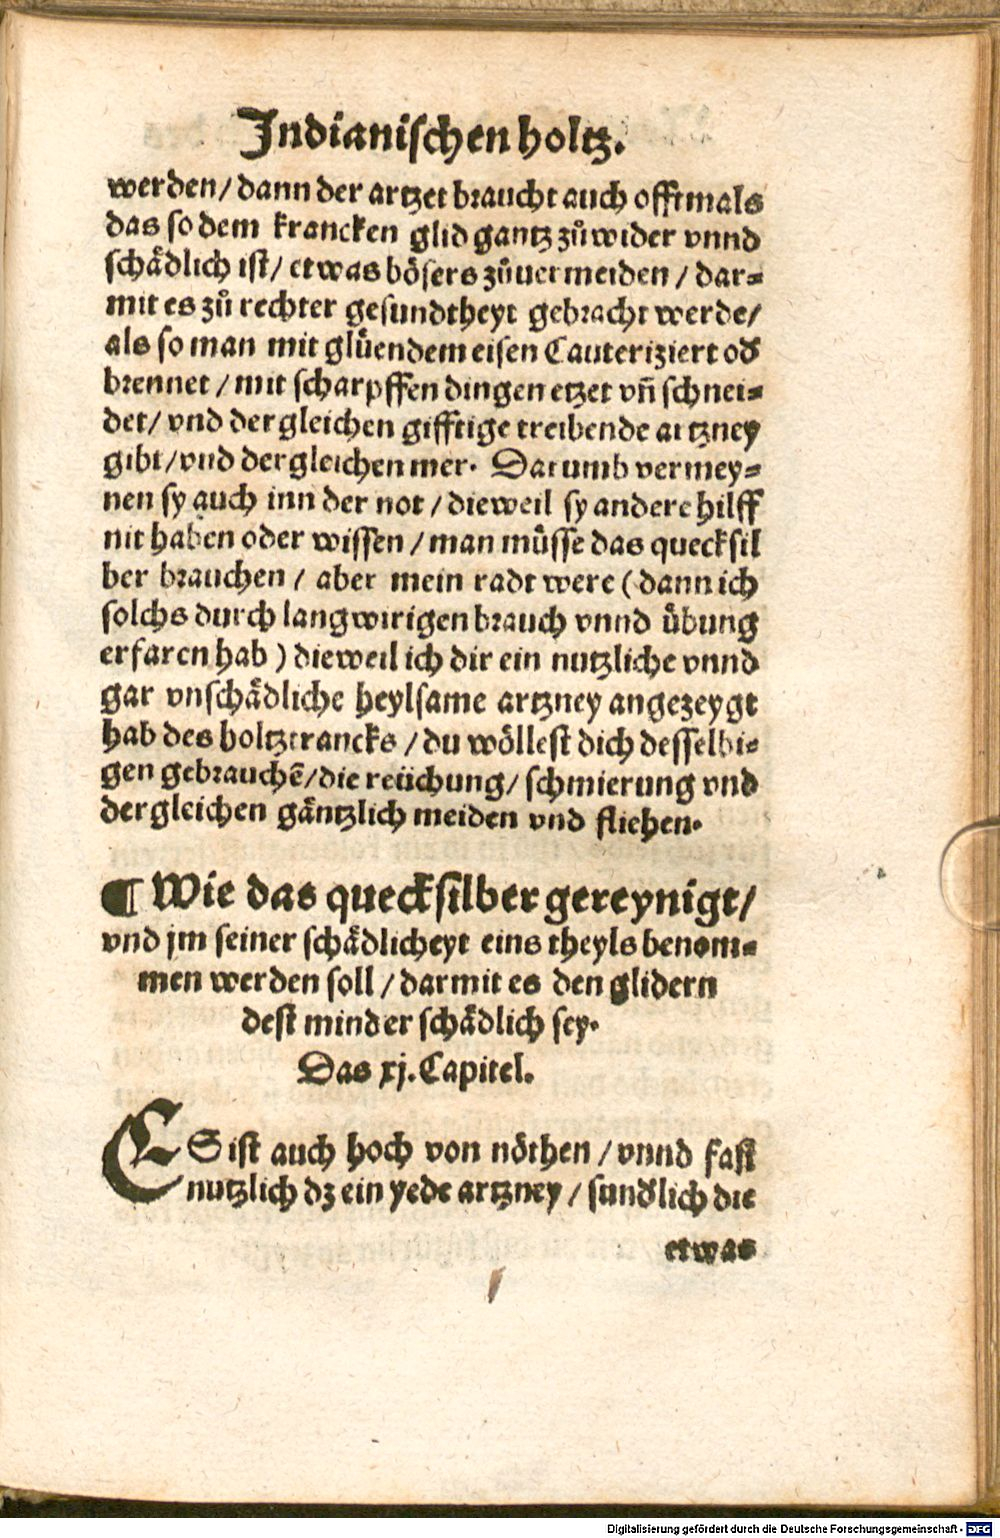 Indianischen holtz.
werden/ dann der artzet braucht auch offtmals
das so dem krancken glid gantz zůwider vnnd
schådlich ist/ etwas bôsers zůuermeiden / dar⸗
mit es zů rechter gesundtheyt gebracht werde/
als so man mit glûendem eisen Cauteriziert od̕
brennet / mit scharpffen dingen etzet vñ schnei⸗
det/ vnd dergleichen gifftige treibende artzney
gibt/vnd dergleichen mer. Darumb vermey⸗
nen sy auch inn der not / dieweil sy andere hilff
nit haben oder wissen / man mûsse das quecksil
ber brauchen / aber mein radt were (dann ich
solchs durch langwirigen brauch vnnd ûbung
erfaren hab ) dieweil ich dir ein nutzliche vnnd
gar vnschådliche heylsame artzney angezeygt
hab des holtztrancks / du wôllest dich desselbi⸗
gen gebrauchē/die reüchung/ schmierung vnd
dergleichen gåntzlich meiden vnd fliehen.
¶ Wie das quecksilber gereynigt/
vnd jm seiner schådlicheyt eins theyls benom⸗
men werden soll / darmit es den glidern
dest minder schådlich sey.
Das xj. Capitel.
ES ist auch hoch von nôthen / vnnd fast
nutzlich dz ein yede artzney / sund̕lich die
etwas
Digitalisierung gefördert durch die Deutsche Forschungsgemeinschaft - DFG